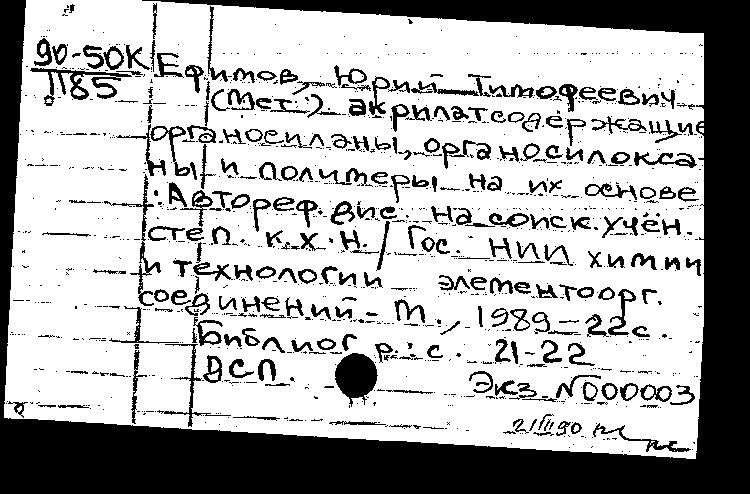 90-50К
1185
Ефимов, Юрий Тимофеевич
(Мет.). акрилатсодержащие
органосиланы, органосилокса-
ны и полимеры на их основе
: Автореф. дис. на соиск. учён.
степ. к.х.н. / Гос. НИИ химии
и технологии элементоорг.
соединений. - М., 1989 - 22с.
Библиогр.: с. 21-22
ДСП.
Экз. №000003
21III90